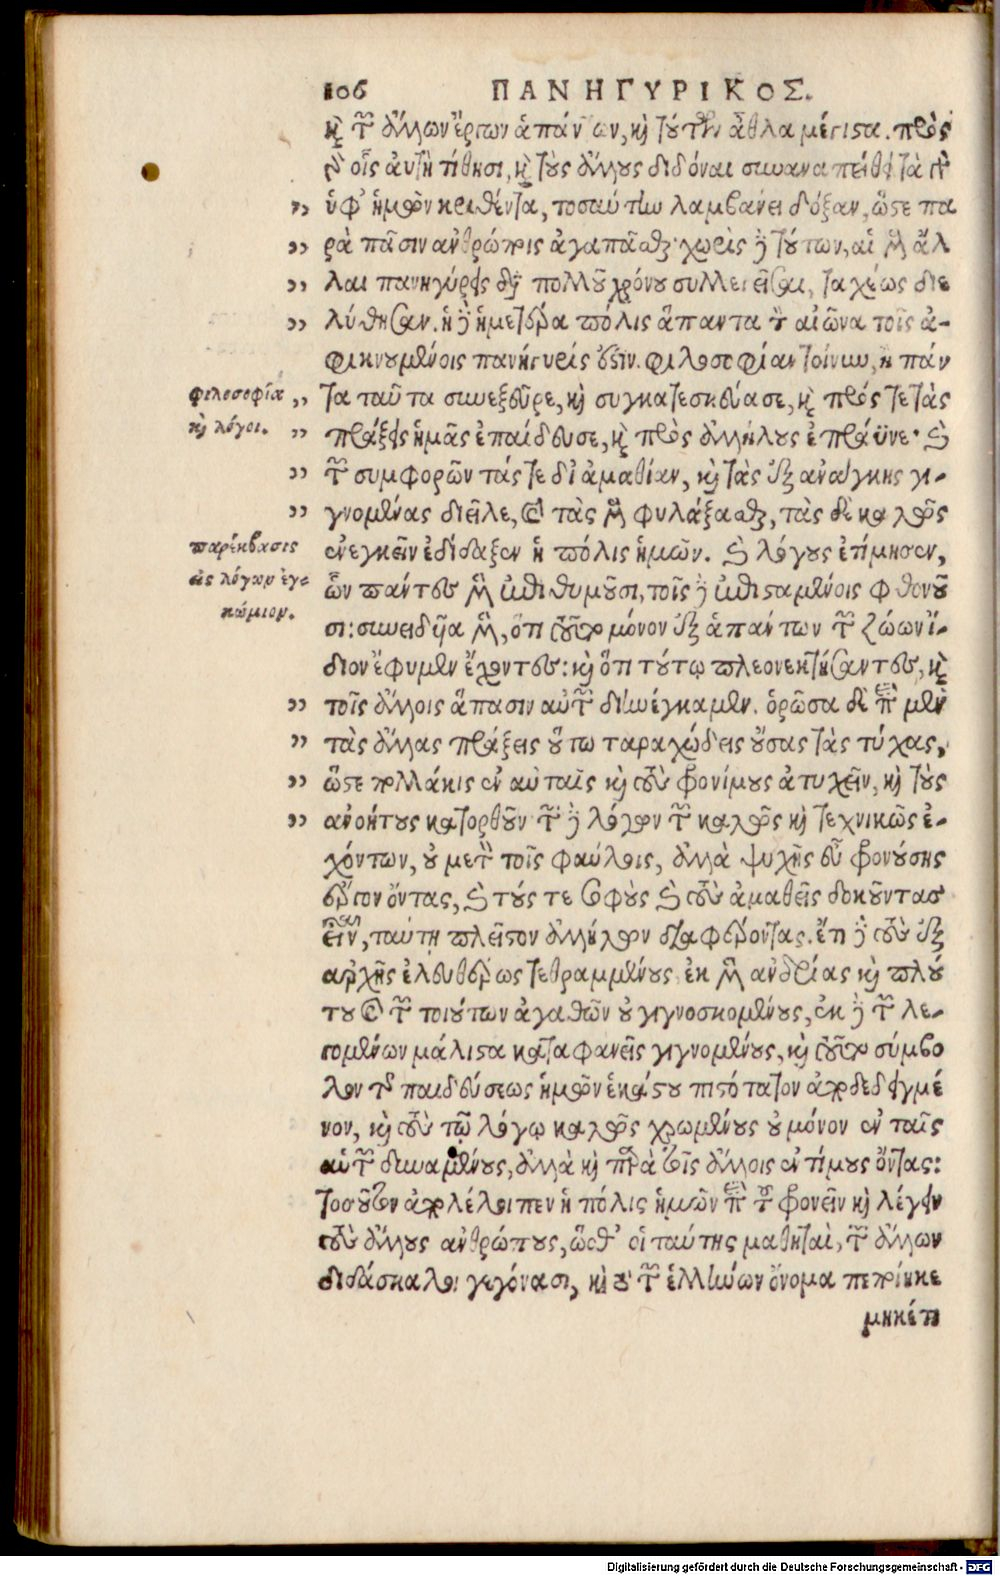 106 ΠΑΝΗΓΥΡΙΚΟΣ.
καὶ τῶν ἄλλων ἔργων ἁπάντων, καὶ τούτων ἆθλα μέγιστα. πρὸς
γὰρ οἷς αὐτὴ τίθησι, καὶ τοὺς ἄλλους διδόναι συναναπείθει τὰ γὰρ
„ ὑφ' ἡμῶν κριθέντα, τοσαύτην λαμβάνει δόξαν, ὥστε πα
„ ρὰ πᾶσιν ἀνθρώποις ἀγαπᾶσθαι· χωρὶς δὲ τούτων, αἱ μὲν ἄλ
„ λαι πανηγύρεις διὰ πολλοῦ χρόνου συλλεγεῖσαι, ταχέως διε
„ λύθησαν. ἡ δὲ ἡμετέρα πόλις ἅπαντα τὸν αἰῶνα τοῖς ἀ-
φικνουμένοις πανήγυρίς ἐστιν. φιλοσοφίαν τοίνυν, ἣ πάν
φιλοσοφία „ τα ταῦτα συνεξεῦρε, καὶ συγκατεσκεύασε, καὶ πρός τε τὰς
καὶ λόγοι. „ πράξεις ἡμᾶς ἐπαίδευσε, καὶ πρὸς ἀλλήλους ἐπράϋνε· καὶ
„ τῶν συμφορῶν τάς τε δι' ἀμαθίαν, καὶ τὰς ἐξ ἀνάγκης γι-
„ γνομένας διεῖλε, καὶ τὰς μὲν φυλάξασθαι, τὰς δὲ καλῶς
παρέκβασις ἐνεγκεῖν ἐδίδαξεν ἡ πόλις ἡμῶν. καὶ λόγους ἐτίμησεν,
εἰς λόγων ἐγ- ὧν πάντες μὲν ἐπιθυμοῦσι, τοῖς δὲ ἐπισταμένοις φθονοῦ
κώμιον. σι: συνειδυῖα μὲν, ὅτι τοῦτο μόνον ἐξ ἁπάντων τῶν ζώων ἴ-
διον ἔφυμεν ἔχοντες: καὶ ὅτι τούτῳ πλεονεκτήσαντες, καὶ
„ τοῖς ἄλλοις ἅπασιν αὐτῶν διηνέγκαμεν. ὁρῶσα δὲ περὶ μὲν
„ τὰς ἄλλας πράξεις οὕτω ταραχώδεις οὔσας τὰς τύχας,
„ ὥστε πολλάκις ἐν αὐταῖς καὶ τοὺς φρονίμους ἀτυχεῖν, καὶ τοὺς
„ ἀνοήτους κατορθοῦν τῶν δὲ λόγων τῶν καλῶς καὶ τεχνικῶς ἐ-
χόντων, οὐ μετὸν τοῖς φαύλοις, ἀλλὰ ψυχῆς εὖ φρονούσης
ἔργον ὄντας, καὶ τούς τε σοφοὺς καὶ τοὺς ἀμαθεῖς δοκοῦντας
εἶναι, ταύτῃ πλεῖστον ἀλλήλων διαφέροντας. ἔτι δὲ τοὺς ἐξ
ἀρχῆς ἐλευθέρως τεθραμμένους, ἐκ μὲν ἀνδρίας καὶ πλού
του καὶ τῶν τοιούτων ἀγαθῶν οὐ γιγνοσκομένους, ἐκ δὲ τῶν λε-
γομένων μάλιστα καταφανεῖς γιγνομένους, καὶ τοῦτο σύμβο
λον τῆς παιδεύσεως ἡμῶν ἑκάστου πιστότατον ἀποδεδειγμέ
νον, καὶ τοὺς τῷ λόγῳ καλῶς χρωμένους οὐ μόνον ἐν ταῖς
αὑτῶν δυναμένους, ἀλλὰ καὶ παρὰ τοῖς ἄλλοις ἐντίμους ὄντας:
τοσοῦτον ἀπολέλοιπεν ἡ πόλις ἡμῶν περὶ τὸ φρονεῖν καὶ λέγειν
τοὺς ἄλλους ἀνθρώπους, ὥσθ' οἱ ταύτης μαθηταὶ, τῶν ἄλλων
διδάσκαλοι γεγόνασι, καὶ τὸ τῶν ἑλλήνων ὄνομα πεποίηκε
μηκέτι
Digitalisierung gefördert durch die Deutsche Forschungsgemeinschaft - DFG